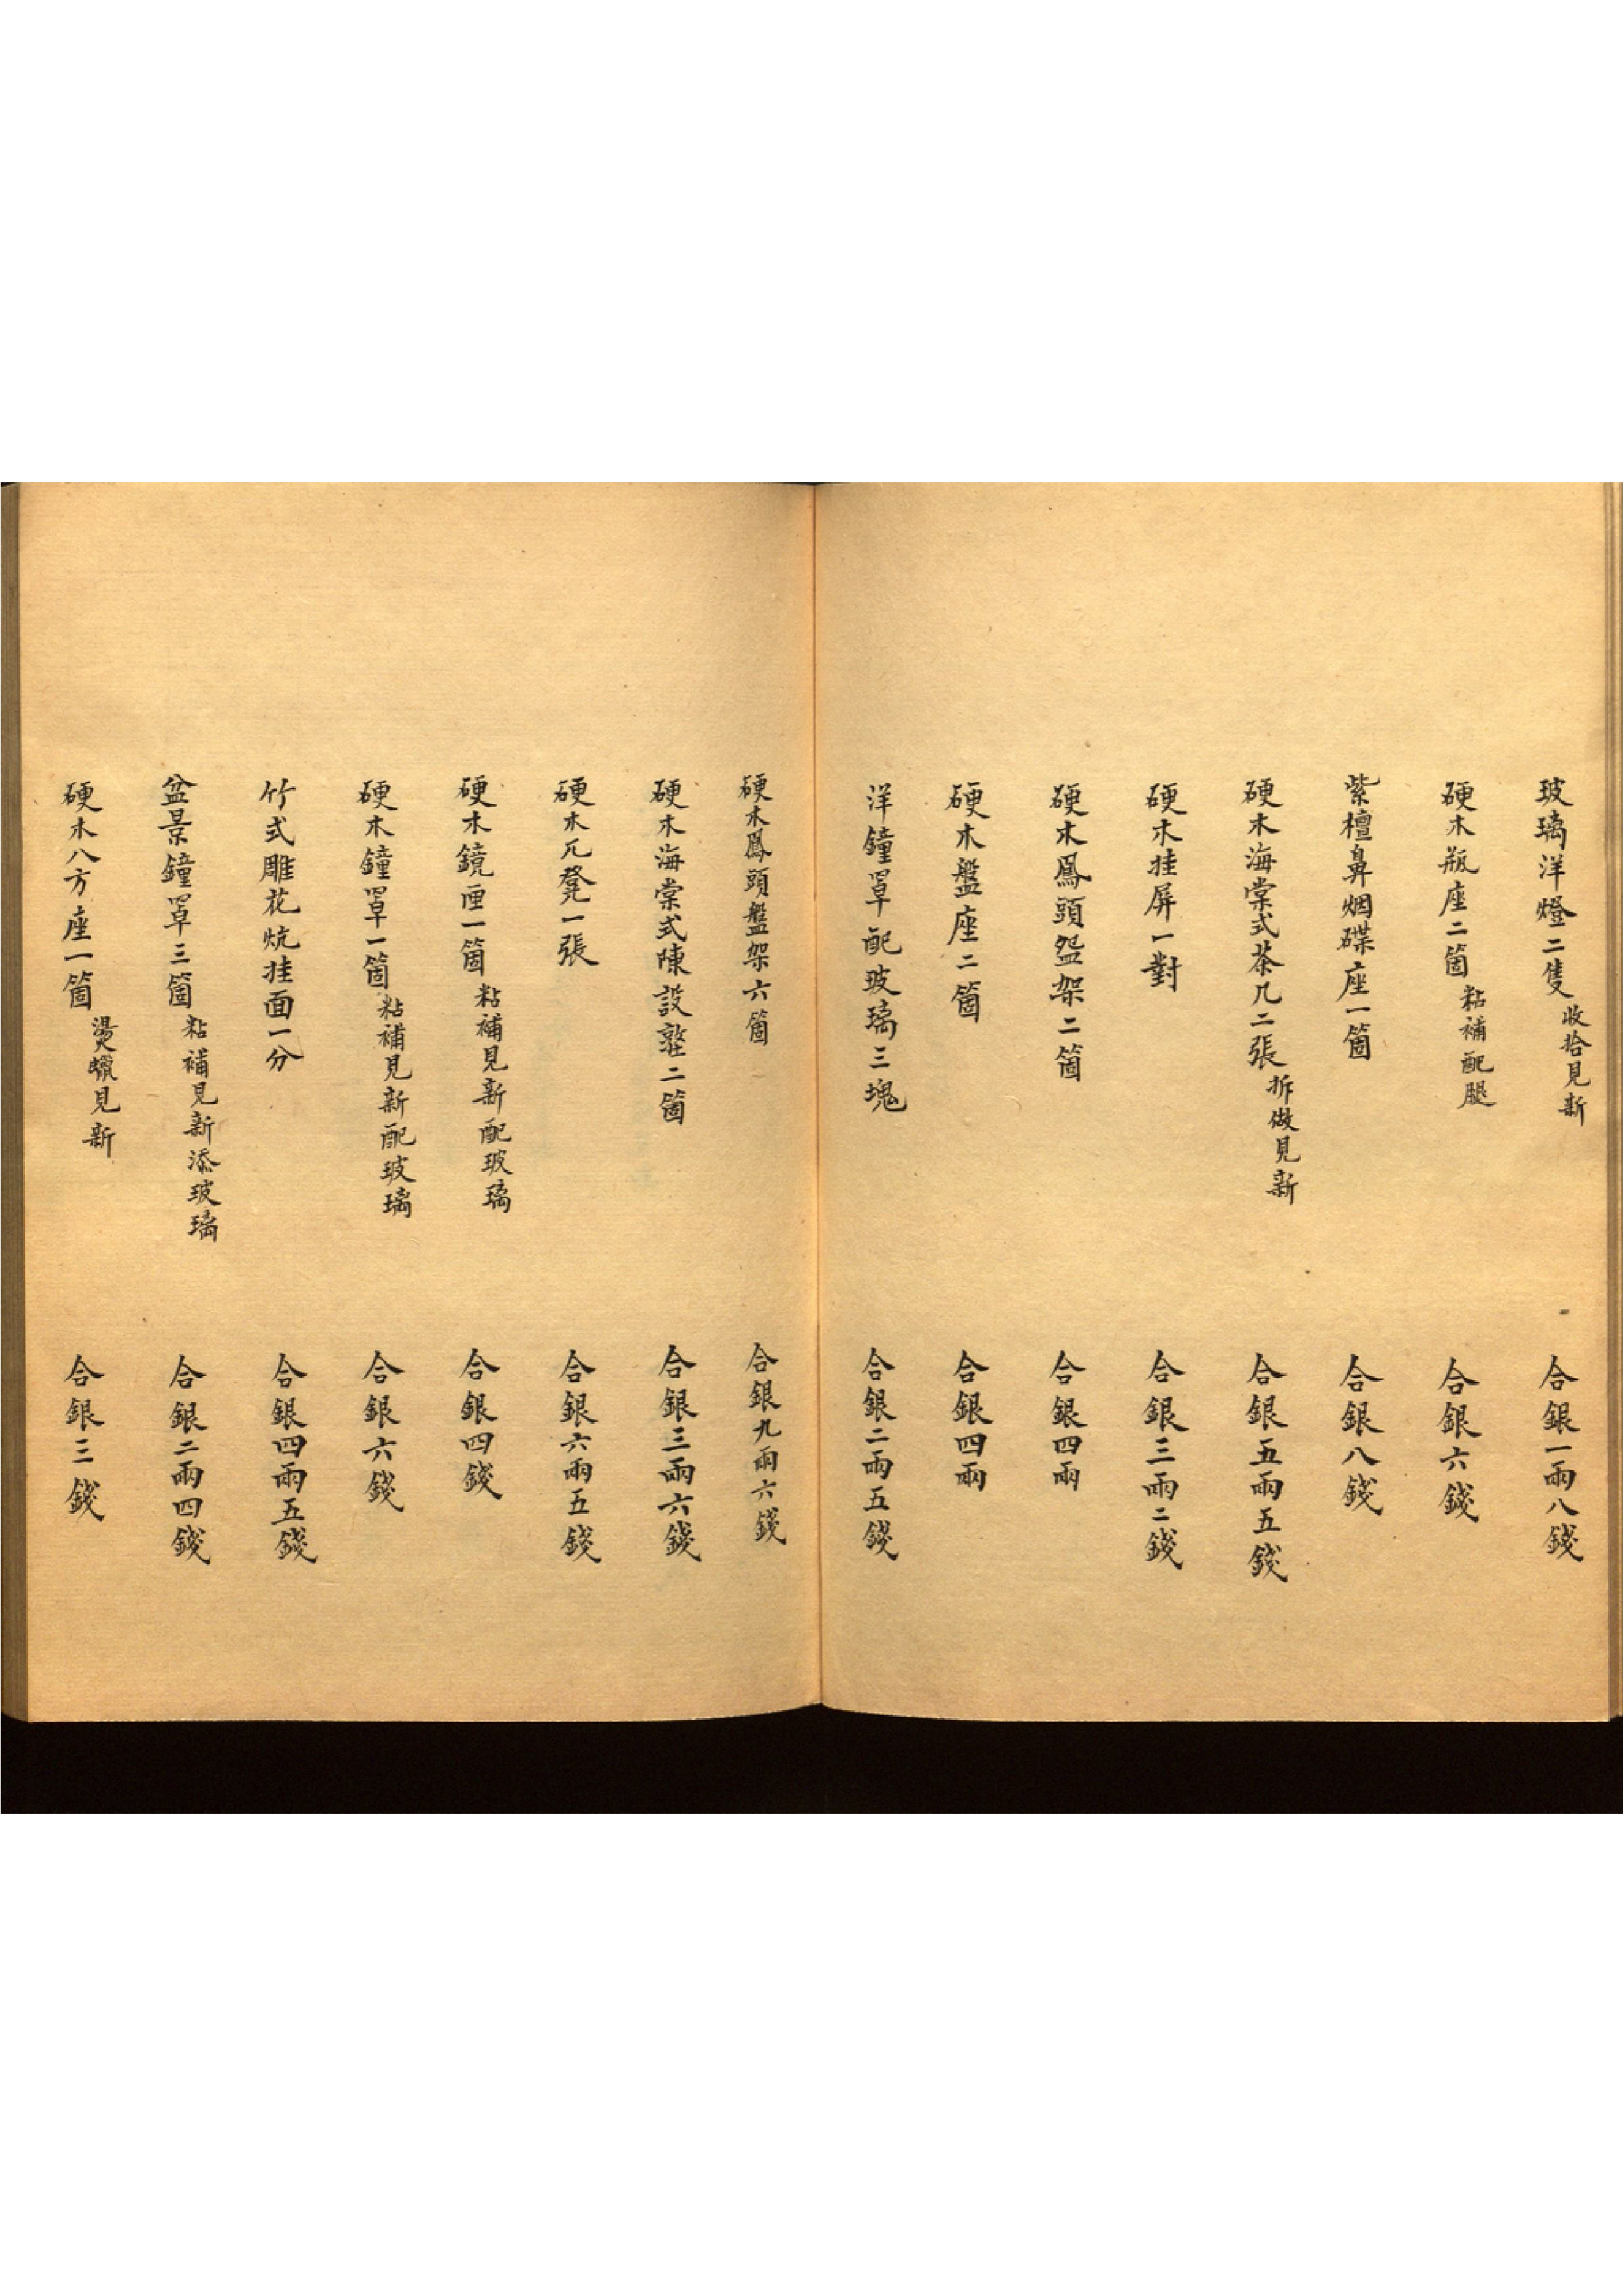 玻璃洋燈二隻收拾見新 合銀一兩八錢
硬木瓶座二箇粘補配腿 合銀六錢
紫檀鼻烟碟座一箇 合銀八錢
硬木海棠式茶几二張拆做見新 合銀五兩五錢
硬木挂屏一對 合銀三兩二錢
硬木鳳頭盌架二箇 合銀四兩
硬木盤座二箇 合銀四兩
洋鐘罩配玻璃三塊 合銀二兩五錢
硬木鳳頭盤架六箇 合銀九兩六錢
硬木海棠式陳設二箇 合銀三兩六錢
硬木兀凳一張 合銀六兩五錢
硬木鏡匣一箇粘補見新配玻璃 合銀四錢
硬木鐘罩一箇粘補見新配玻璃 合銀六錢
竹式雕花炕挂面一分 合銀四兩五錢
盆景鐘罩三箇粘補見新添玻璃 合銀二兩四錢
硬木八方座一箇燙蠟見新 合銀三錢